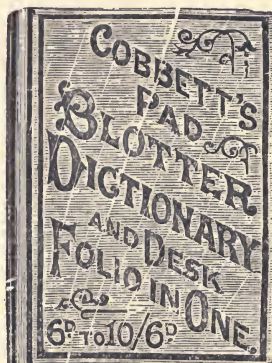 COBBETT'S
PAD
BLOTTER
DICTIONARY
AND DESK
FOLIO IN ONE.
6D. TO 10/6D.